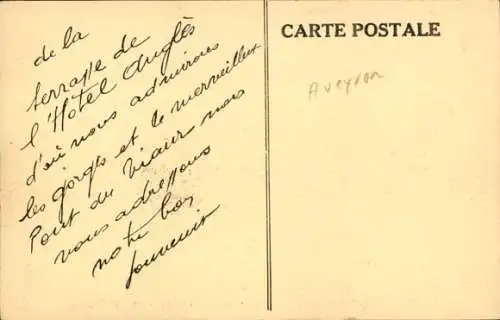 de la
terrasse de
l'Hôtel Anglès
d'où nous admirons
les gorges et le merveilleux
Pont du Viaur nous
vous adressons
notre bon
souvenir
CARTE POSTALE
Aveyron